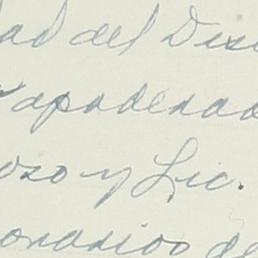 del Dis
apoderad
oso y Lic.
onarios de